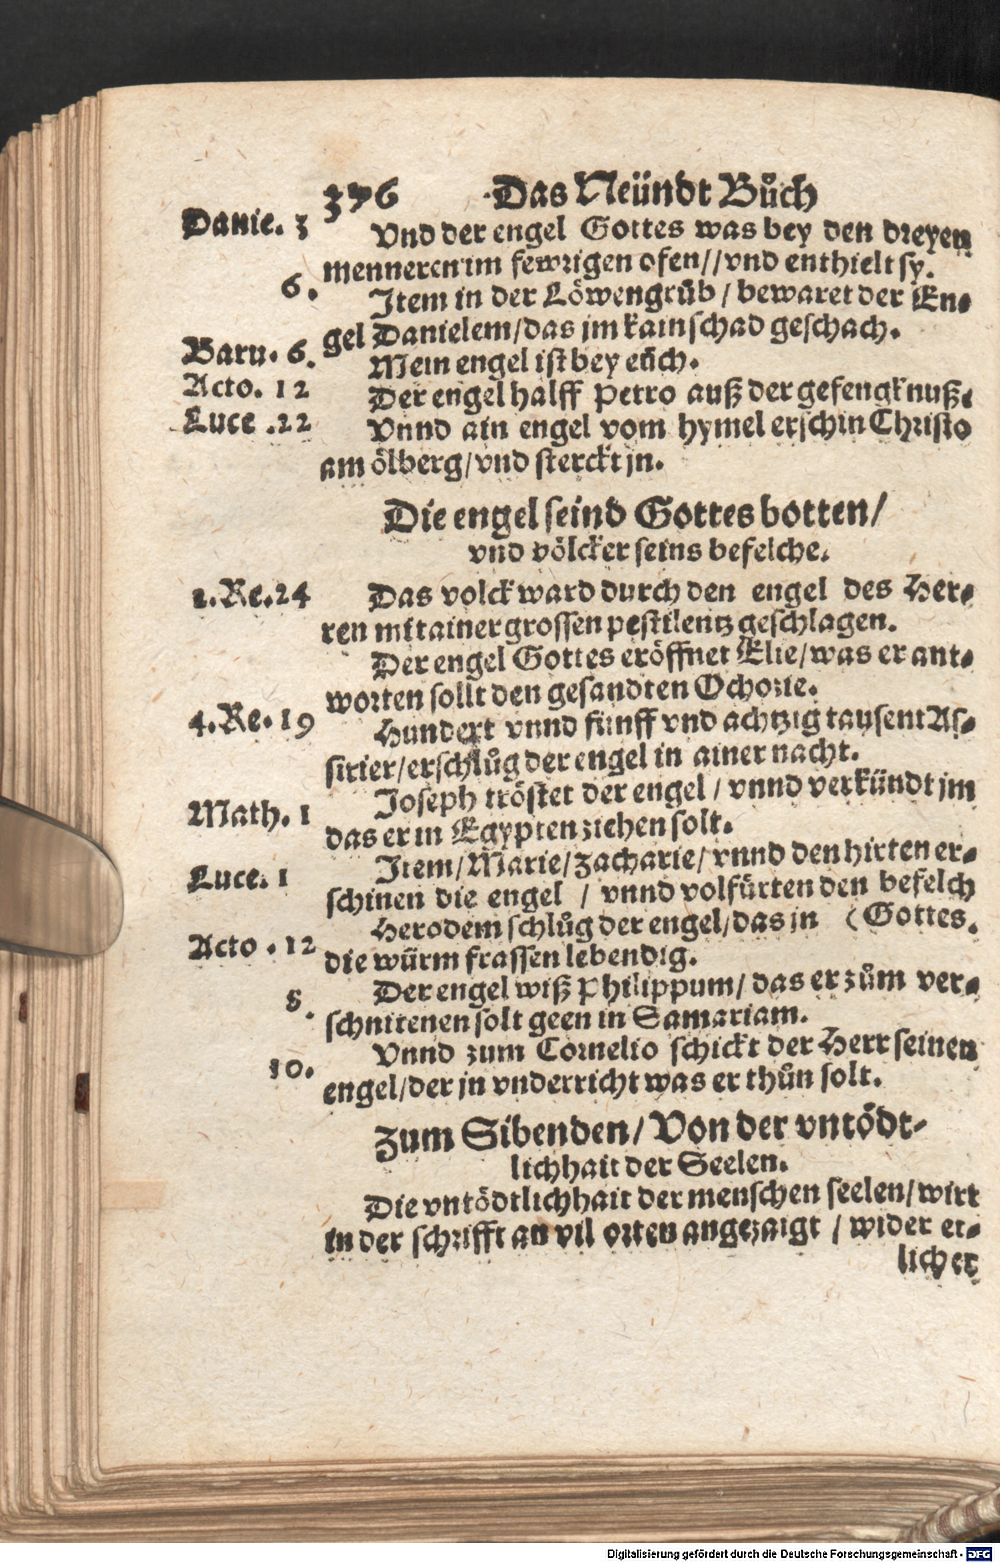 376 Das Neündt Bůch
Danie. 3 Vnd der engel Gottes was bey den dreyen
menneren im fewrigen ofen//vnd enthielt sy.
6. Item in der Löwengrůb/bewaret der En-
gel Danielem/das jm kain schad geschach.
Baru. 6. Mein engel ist bey eüch.
Acto. 12 Der engel halff Petro auß der gefengknuß.
Luce .22 Vnnd ain engel vom hymel erschin Christo
am ölberg/vnd sterckt jn.
Die engel seind Gottes botten/
vnd völcker seins befelche.
2.Re.24 Das volck ward durch den engel des Her-
ren mit ainer grossen pestilentz geschlagen.
Der engel Gottes eröffnet Elie/was er ant-
worten sollt den gesandten Ochozie.
4.Re.19 Hundert vnnd fünff vnd achtzig tausent As-
sirier/erschlůg der engel in ainer nacht.
Math. 1 Joseph tröstet der engel/vnnd verkündt jm
das er in Egypten ziehen solt.
Luce. 1 Item/Marie/Zacharie/vnnd den hirten er-
schinen die engel / vnnd volfürten den befelch
Herodem schlůg der engel/das jn (Gottes.
Acto . 12 die würm frassen lebendig.
8. Der engel wiß Philippum/das er zům ver-
schnitenen solt geen in Samariam.
10. Vnnd zum Cornelio schickt der Herr seinen
engel/der jn vnderricht was er thůn solt.
Zum Sibenden/Von der vntödt-
lichhait der Seelen.
Die vntödtlichhait der menschen seelen/wirt
in der schrifft an vil orten angezaigt / wider et-
licher
Digitalisierung gefördert durch die Deutsche Forschungsgemeinschaft - DFG